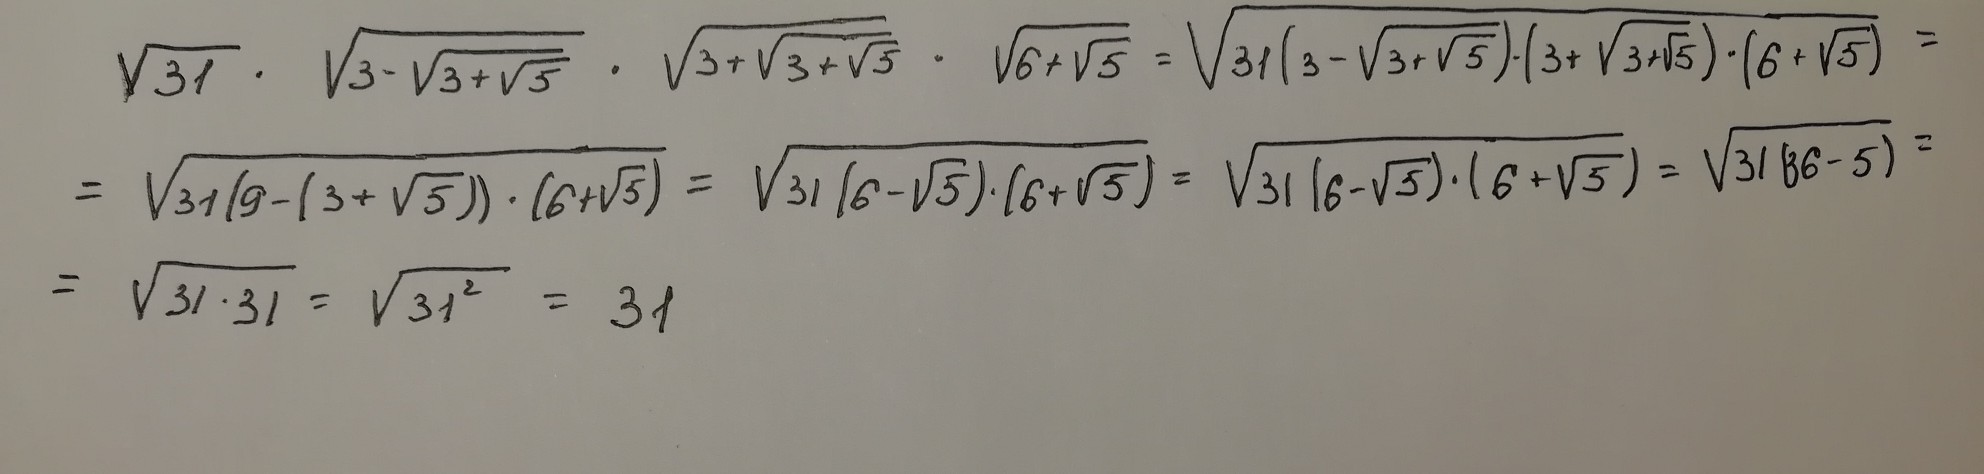 √31 · √(3-√(3+√5)) · √(3+√(3+√5)) · √(6+√5) = √(31(3-√(3+√5))·(3+√(3+√5))·(6+√5)) =
= √(31(9-(3+√5))·(6+√5)) = √(31(6-√5)·(6+√5)) = √(31(6-√5)·(6+√5)) = √(31(36-5)) =
= √(31·31) = √(31²) = 31